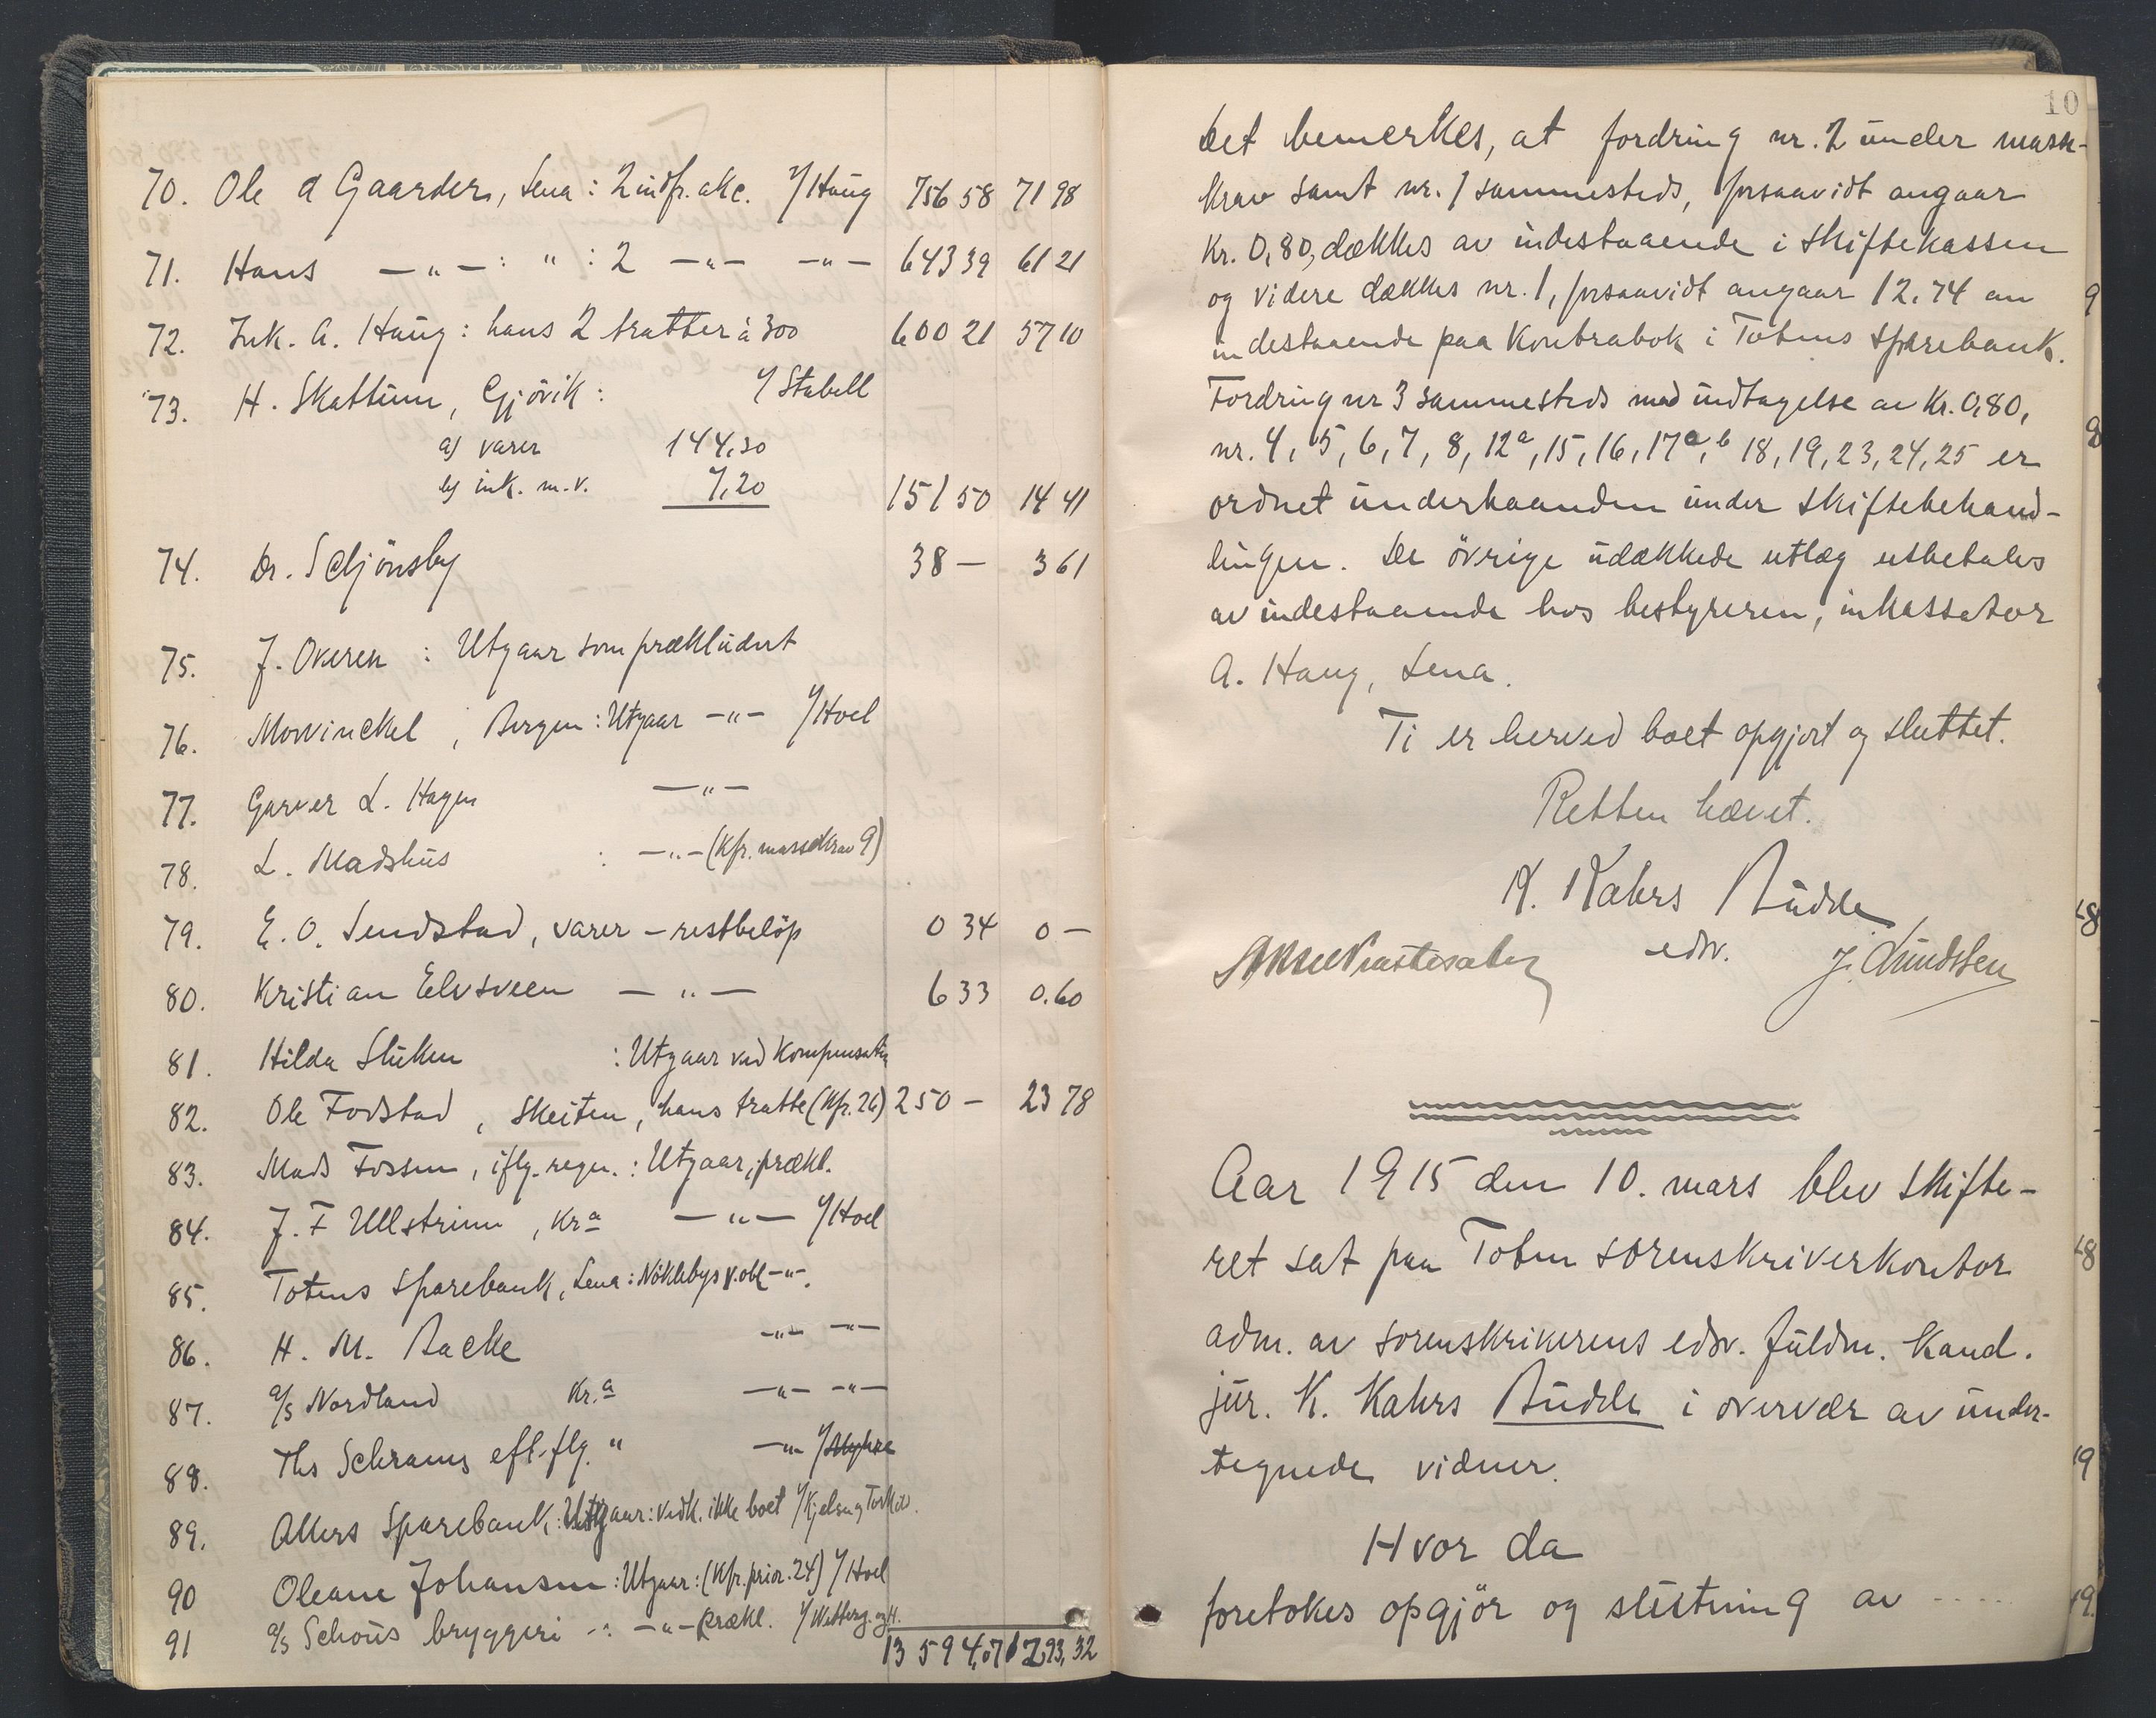 70. Ole d Gaarder, Lena : 2 indfr. akc. v/ Haug 756 58 71 98
71. Hans —„— : „ : 2 —„— —„— 643 39 61 21
72. Ink. A. Haug : hans 2 tratter à 300 600 21 57 10
73. H. Skattum, Gjövik : v/ Stabell
a) varer 144,30
b) ink. m. v. 7,20 151 50 14 41
74. Dr. Schjönsby 38 — 3 61
75. J. Overen : Utgaar som prækludert
76. Mowinckel, Bergen : Utgaar —„— v/ Hoel
77. Garver L. Hagen —„—
78. L. Madshus : —„— (Kfr. massekrav 9)
79. E. O. Sendstad, varer – restbelöp 0 34 0 —
80. Kristian Elvsveen —„— 6 33 0.60
81. Hilda Stuken : Utgaar ved Kompensation
82. Ole Fodstad, Skeiten, hans tratte (Kfr. 26) 250 — 23 78
83. Mads Fossen, iflg. regn. : Utgaar, prækl.
84. J. F Ullstrinn, Kra —„— v/ Hoel
85. Totens Sparebank, Lena : Nöklebys v. obl —„—.
86. H. M. Backe —„— —„—
87. a/s Nordland Kr.a —„— —„—
88. Ths Schrams eft.flg. „ —„— v/ Myhre
89. Akers Sparebank : Utgaar : vedk. ikke boet v/ Kjelsen g
90 Oleane Johansen : Utgaar : (Kfr. prior. 24) v/ Hoel
91 a/s Schous bryggeri —„— prækl.
13 594,07 1 293,32
10
Det bemerkes, at fordring nr. 2 under masse-
krav samt nr. 1 sammesteds, forsaavidt angaar
Kr. 0,80, dækkes av indestaaende i Skiftekassen
og videre dækkes nr. 1, forsaavidt angaar 12.74 av
indestaaende paa Kontrabok i Totens Sparebank.
Fordring nr 3 sammesteds med undtagelse av Kr. 0,80,
nr. 4, 5, 6, 7, 8, 12a, 15, 16, 17a, b 18, 19, 23, 24, 25 er
ordnet underhaanden under skiftebehand-
lingen. De övrige udækkede utlæg utbetales
av indestaaende hos bestyreren, inkassator
A. Haug, Lena.
Ti er herved boet opgjort og sluttet.
Retten hævet.
K. Kahrs Budde
edsv.
J. Knudssen
Aar 1915 den 10. mars blev skifte-
ret sat paa Toten sorenskriverkontor
adm. av sorenskriverens edsv. fuldm. Kand.
jur. K. Kahrs Budde i overvær av under-
tegnede vidner.
Hvor da
foretokes opgjör og slutning av . . . . .